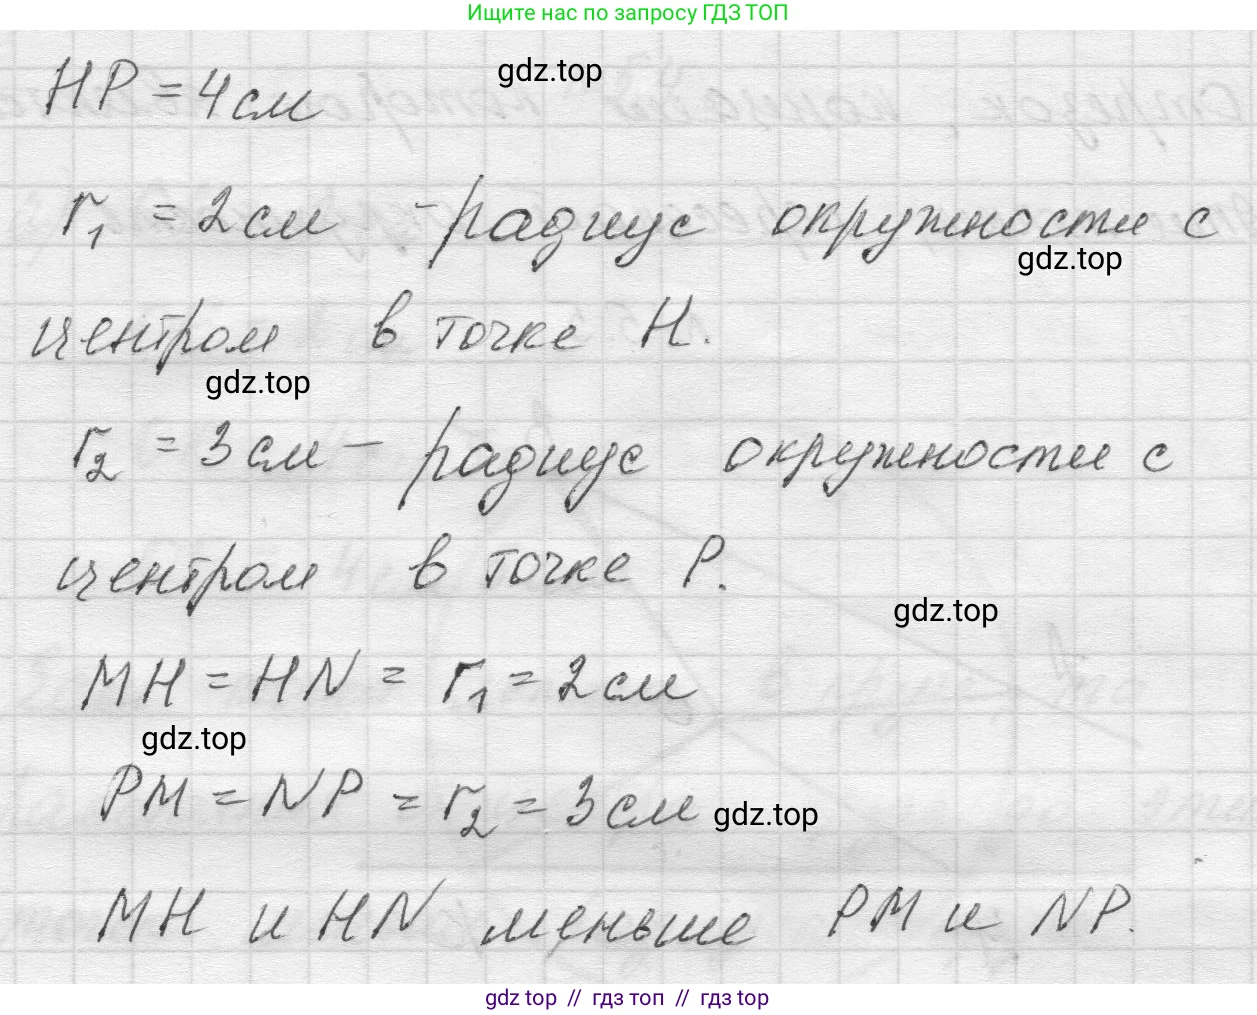 Ищите нас по запросу ГДЗ ТОП
HP = 4 см
gdz.top
r₁ = 2 см - радиус окружности с
gdz.top
центром в точке H.
gdz.top
r₂ = 3 см — радиус окружности с
центром в точке P.
gdz.top
MH = HN = r₁ = 2 см
gdz.top
PM = NP = r₂ = 3 см
gdz.top
MH и HN меньше PM и NP.
gdz top // гдз топ // гдз top